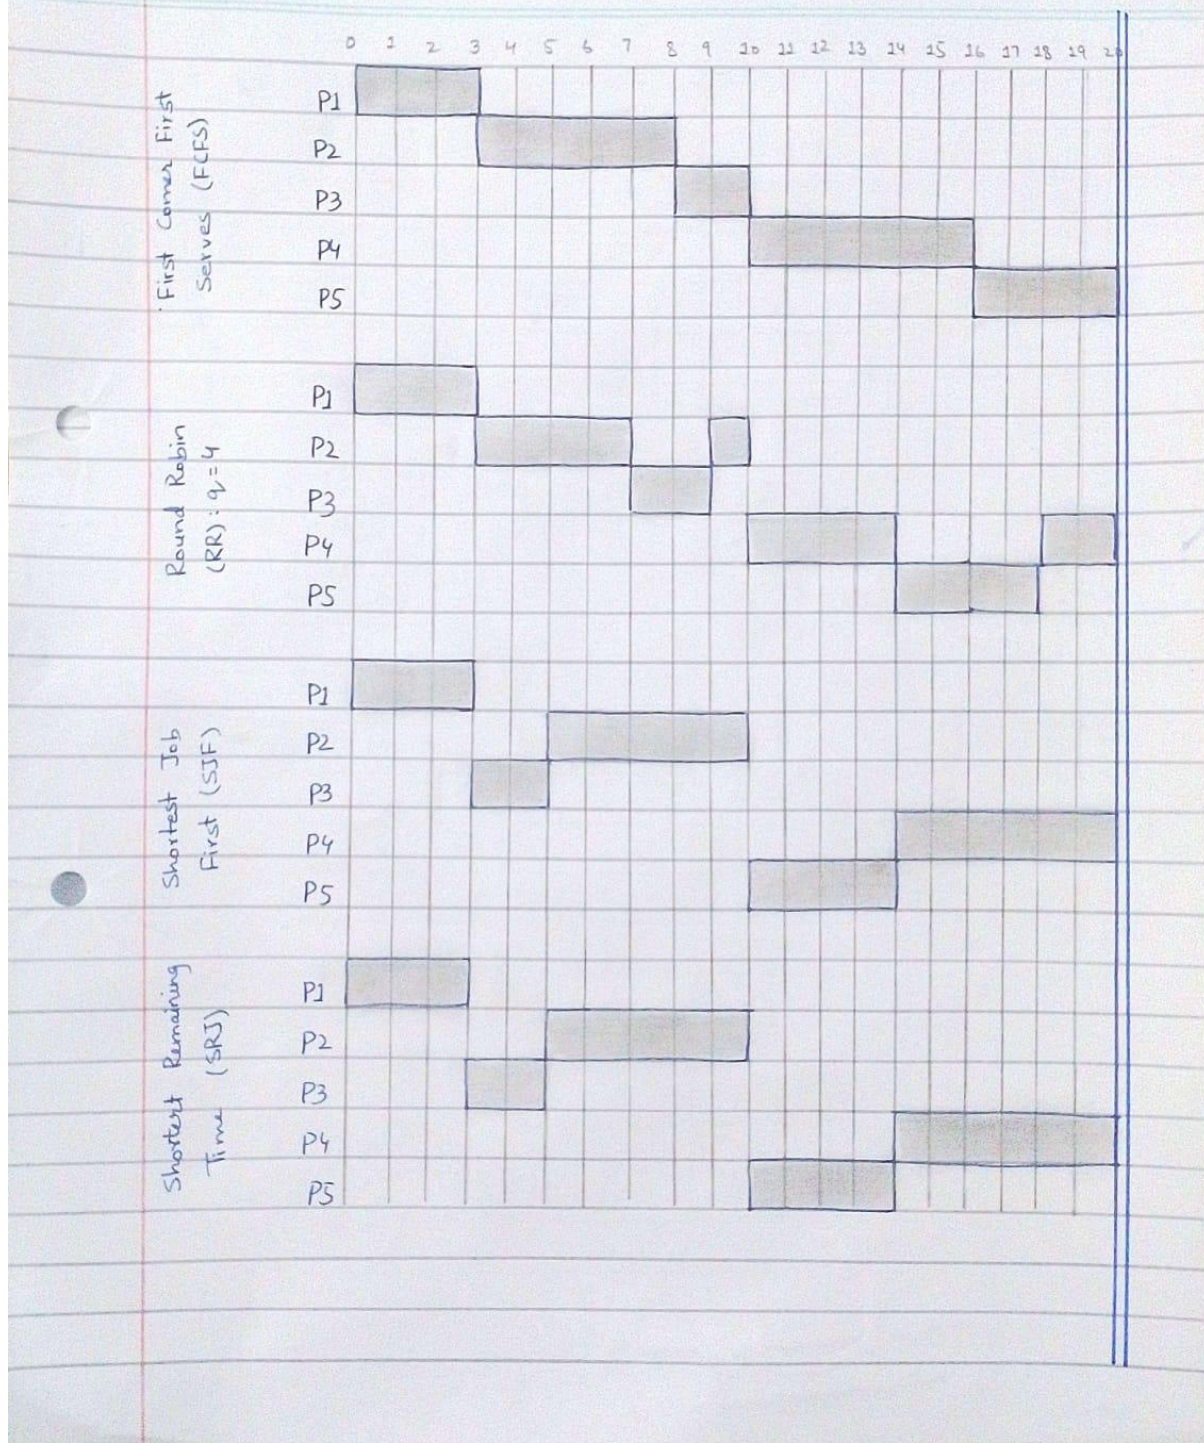 0 1 2 3 4 5 6 7 8 9 10 11 12 13 14 15 16 17 18 19 20
First Comer First
Serves (FCFS)
P1
P2
P3
P4
P5
Round Robin
(RR) : q = 4
P1
P2
P3
P4
P5
Shortest Job
First (SJF)
P1
P2
P3
P4
P5
Shortest Remaining
Time (SRJ)
P1
P2
P3
P4
P5